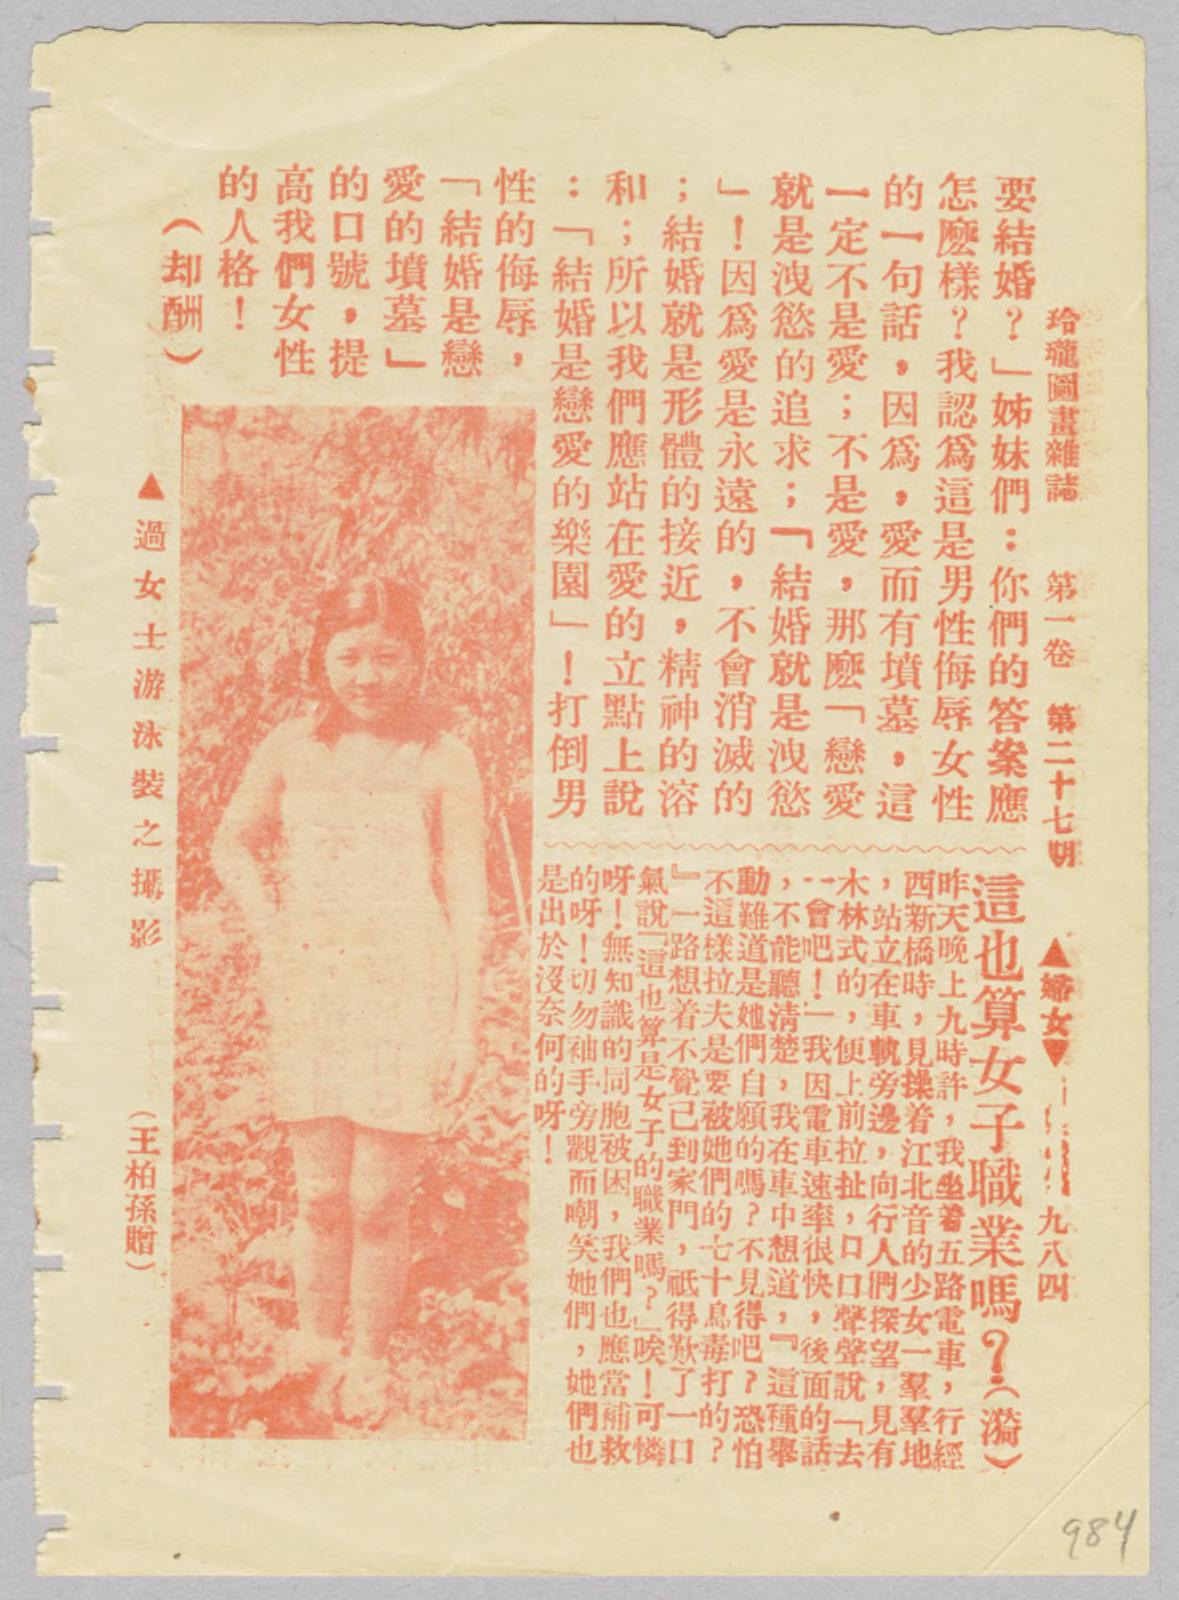 玲瓏圖畫雜誌　第一卷　第二十七期　▲婦女▼　九八四
要結婚？」姊妹們：你們的答案應
怎麽樣？我認爲這是男性侮辱女性
的一句話，因爲，愛而有墳墓，這
一定不是愛；不是愛，那麽「戀愛
就是洩慾的追求；「結婚就是洩慾
」！因爲愛是永遠的，不會消滅的
；結婚就是形體的接近，精神的溶
和；所以我們應站在愛的立點上說
：「結婚是戀愛的樂園」！打倒男
性的侮辱，
「結婚是戀
愛的墳墓」
的口號，提
高我們女性
的人格！
（却酬）
這也算女子職業嗎？（漪）
昨天晚上九時許，我坐着五路電車，行經
西新橋時，見操着江北音的少女一羣羣地
，站立在車軌旁邊，向行人們探望，見有
木林式的，便上前拉扯，口口聲聲說「去
一會吧！」我因電車速率很快，後面的話
，不能聽清楚，我在車中想道，『這種舉
動難道是她們自願的嗎？不見得吧？恐怕
不這樣拉夫是要被她們的七十鳥毒打的？
』一路想着不覺已到家門，祇得歎了一口
氣說「這也算是女子的職業嗎？」唉！可憐
呀！無知識的同胞被困，我們也應當補救
的呀！切勿袖手旁觀而嘲笑她們，她們也
是出於沒奈何的呀！
▲過女士游泳裝之攝影
（王柏孫贈）
984